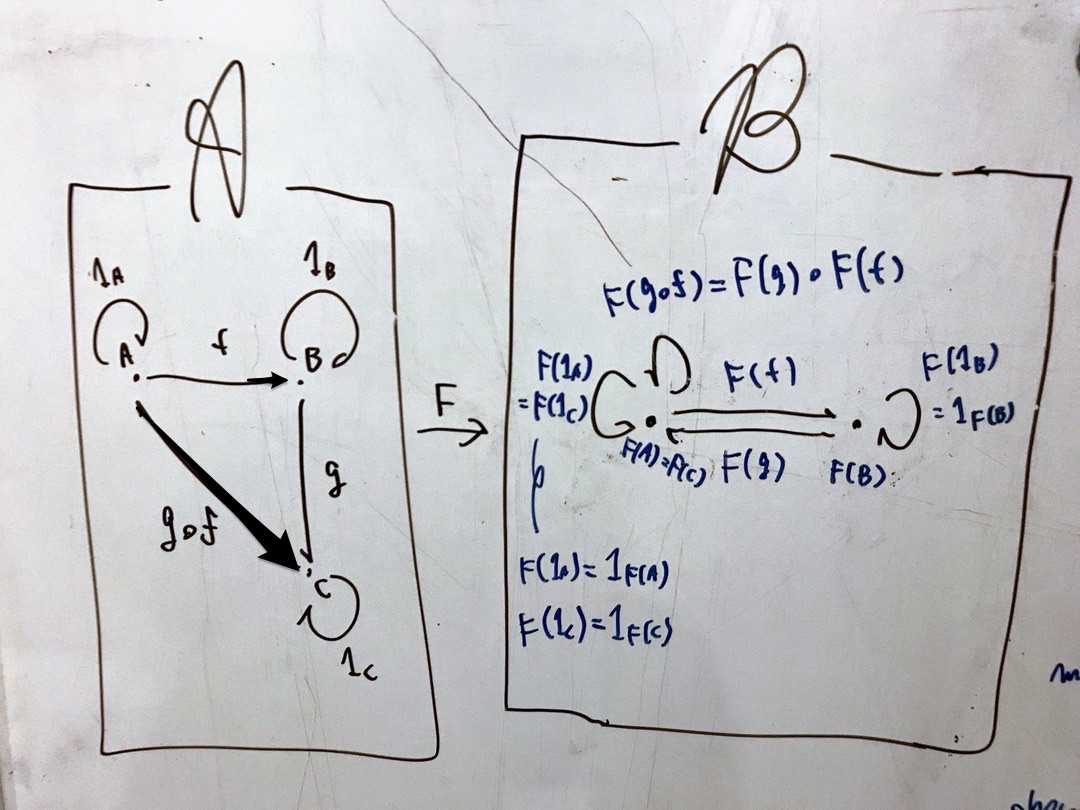 A
B
1A
1B
A
f
B
g
g∘f
C
1C
F
F(g∘f)=F(g)∘F(f)
F(1A)
=F(1C)
F(f)
F(1B)
=1F(B)
F(A)=F(C)
F(g)
F(B)
F(1A)=1F(A)
F(1C)=1F(C)